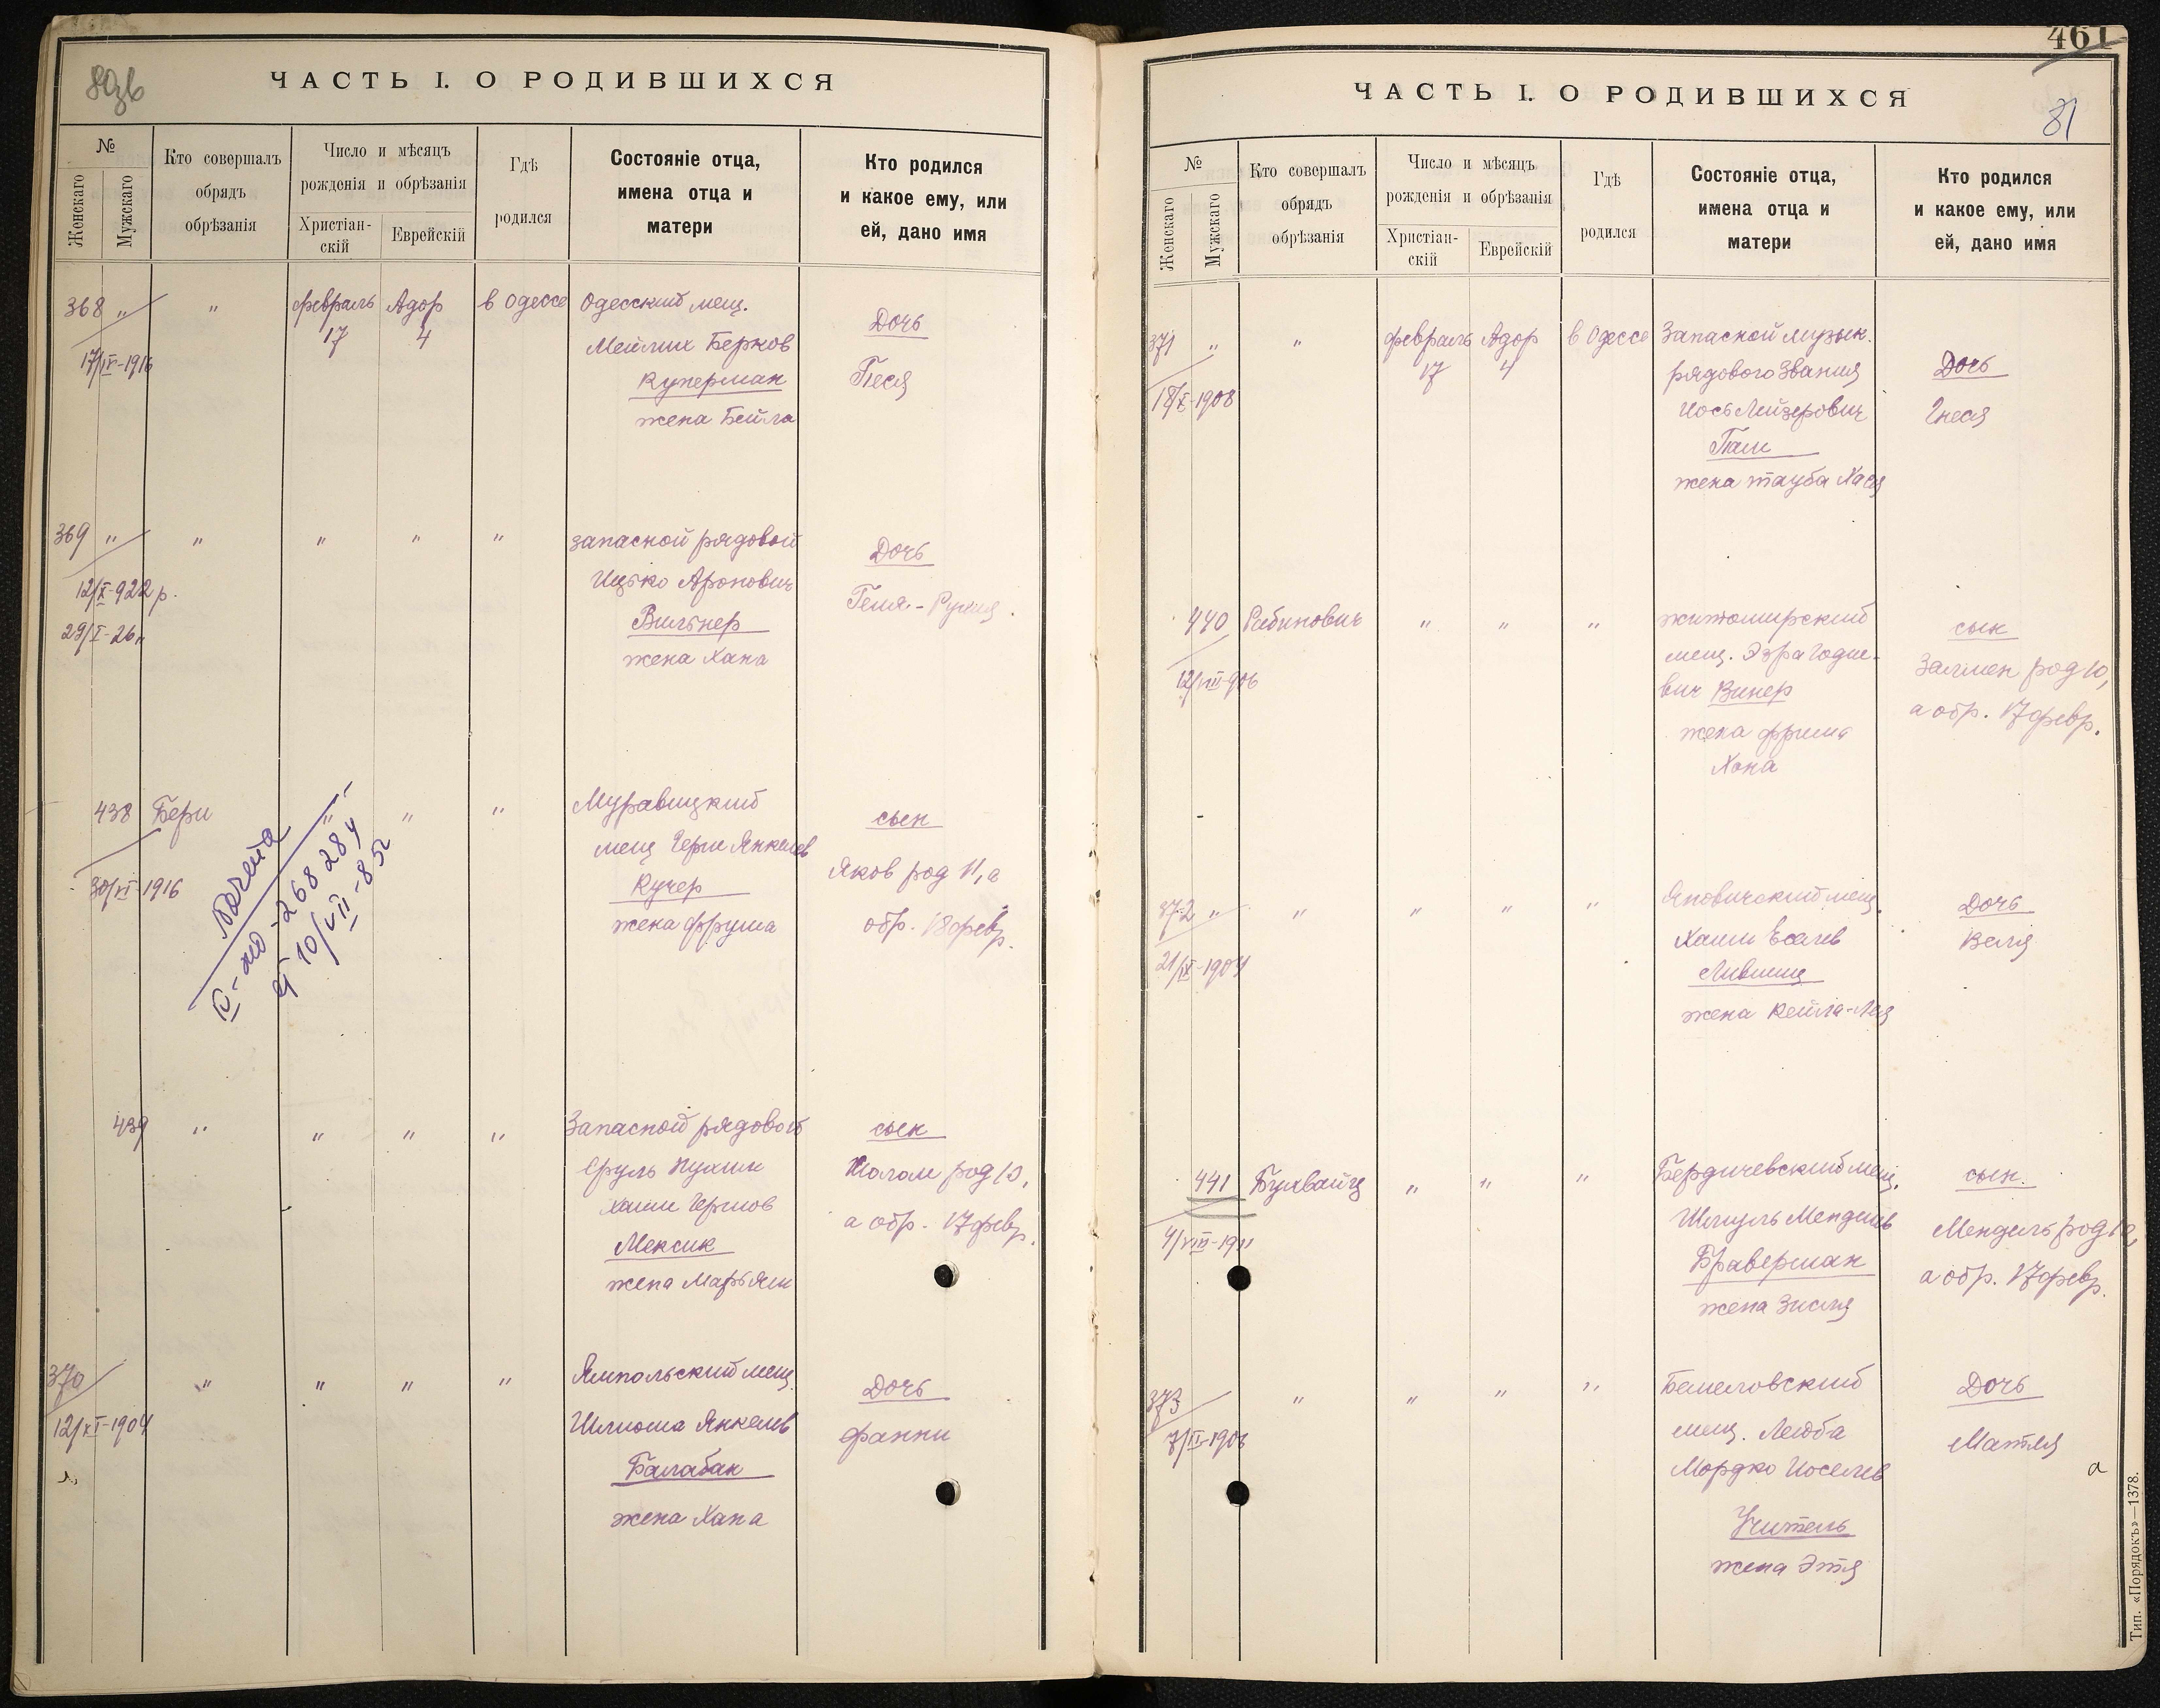 80зв
ЧАСТЬ I. О РОДИВШИХСЯ
№
Женскаго
Мужскаго
Кто совершалъ
обрядъ
обрѣзанія
Число и мѣсяцъ
рожденія и обрѣзанія
Христіан-
скій
Еврейскій
Гдѣ
родился
Состояніе отца,
имена отца и
матери
Кто родился
и какое ему, или
ей, дано имя
368 " " февраль Адор в Одессе Одесский мещ.
17 4
17/IV-1916
Мейлих Берков
Куперман
жена Бейла
Дочь
Песя
369 " " " " " запасной рядовой
12/X-922 р.
29/I-26
Ицько Аронович
Вильнер
жена Хана
Дочь
Геня-
438 Бери " " "
30/XI-1916
IV-мю-268284
10/VII-852
мещ Герш Янкелев
Кучер
жена Фрума
сын
Яков род 11, а
обр. 18 февр.
439 " " " " Запасной рядовой
Хаим Гершов
Мексик
жена Марьям
сын
Шолом род 10,
а обр. 17 февр.
370 " " " " Ямпольский мещ.
12/XI-1904
Шлиома Янкелев
Балабан
жена Хана
Дочь
Фанни
461
81
ЧАСТЬ I. О РОДИВШИХСЯ
№
Женскаго
Мужскаго
Кто совершалъ
обрядъ
обрѣзанія
Число и мѣсяцъ
рожденія и обрѣзанія
Христіан-
скій
Еврейскій
Гдѣ
родился
Состояніе отца,
имена отца и
матери
Кто родился
и какое ему, или
ей, дано имя
371 " " февраль Адор в Одессе Запасной музык.
17 4
18/X-1908
рядового звания
Иось Лейзерович
жена Тауба Хася
Дочь
Гнеся
440 Рабинович " " " житомирский
12/VII-906
мещ. Эзра Годие-
вич Винер
жена Фрима
Хона
сын
Залмен род 10,
а обр. 17 февр.
372 " " " " "
21/IX-1904
Лившиц
жена Кейла-Лея
Дочь
Веля
441 Бухвайц " " " Бердичевский мещ.
4/VIII-1911
Шмуль Менделев
Браверман
жена Зисля
сын.
Мендель род 10,
а обр. 17 февр.
373 " " " "
7/II-1906
мещ. Лейба
Мордко Иоселев
Учитель
жена Этя
Дочь
Матля
а
Тип. «Порядокъ»—1378.